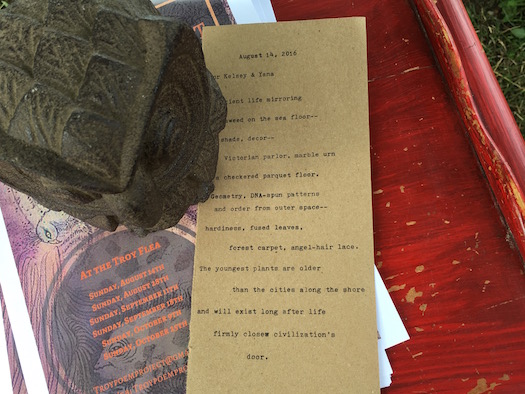 August 14, 2016
Kelsey & Yana
life mirroring
on the sea floor--
decor--
Victorian parlor, marble urn
checkered parquet floor.
Geometry, DNA-spun patterns
and order from outer space--
hardiness, fused leaves,
forest carpet, angel-hair lace.
The youngest plants are older
than the cities along the shore
and will exist long after life
firmly closes civilization's
door.
At the Troy Flea
Sunday, August 14th
Sunday, August 28th
Sunday, September
Sunday, September
Sunday, October 9th
Sunday, October